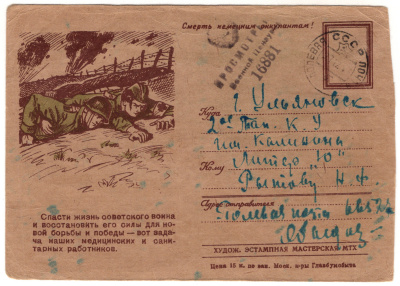 Смерть немецким оккупантам!
ПРОСМОТРЕНО
Военной Цензурой
16881
СССР
Куда г. Ульяновск
2ое Тан. К. У
им. Калинина
Кому Литер "Ю"
Рытову Н. Ф.
Адрес отправителя
Полевая почта
Спасти жизнь советского воина
и восстановить его силы для но-
вой борьбы и победы — вот зада-
ча наших медицинских и сани-
тарных работников.
ХУДОЖ. ЭСТАМПНАЯ МАСТЕРСКАЯ МТХ
Цена 15 к.